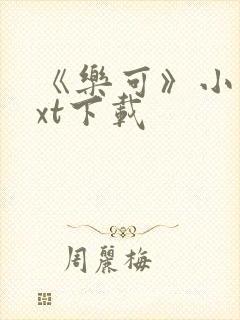 《樂可》小
xt下載
周麗梅